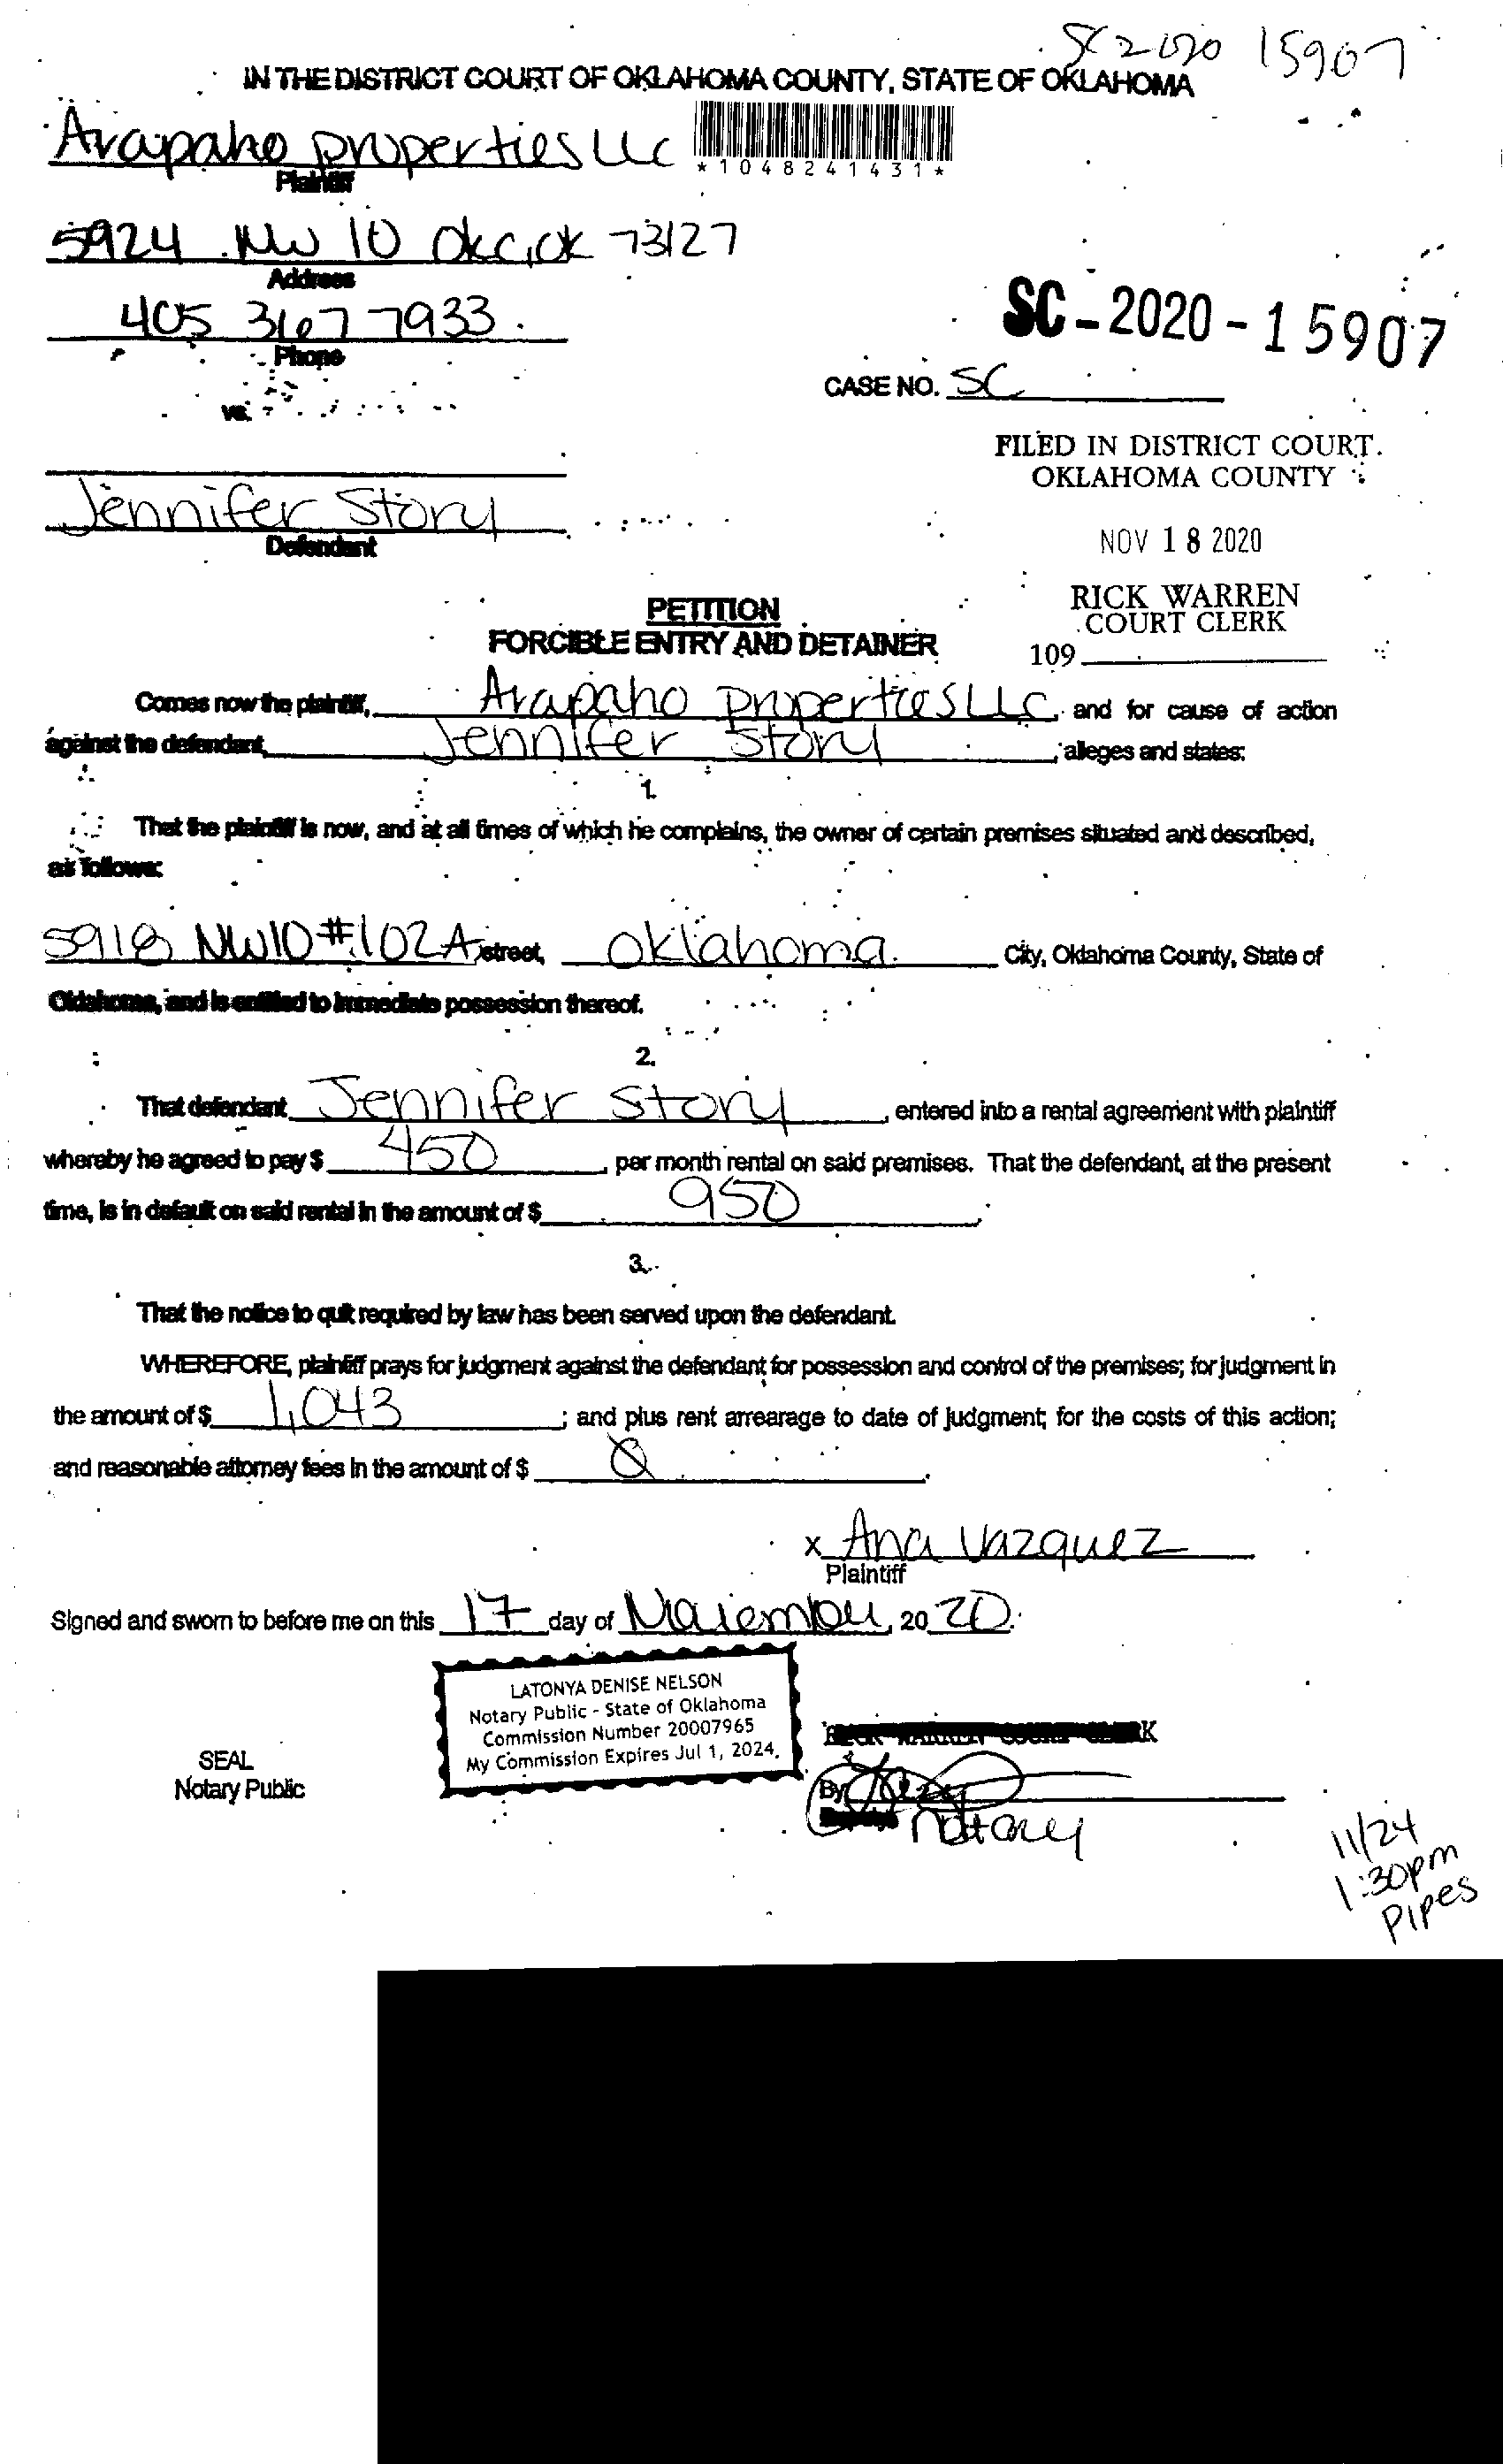 SC 2020 15907
IN THE DISTRICT COURT OF OKLAHOMA COUNTY, STATE OF OKLAHOMA
Arapaho properties LLC
*1048241431*
Plaintiff
5924 NW 10 OKC, OK 73127
Address
405 367 7933
Phone
SC-2020-15907
CASE NO. SC
vs.
FILED IN DISTRICT COURT
OKLAHOMA COUNTY
Jennifer Story
Defendant
NOV 18 2020
RICK WARREN
COURT CLERK
109
PETITION
FORCIBLE ENTRY AND DETAINER
Comes now the plaintiff, Arapaho properties LLC, and for cause of action
against the defendant, Jennifer Story, alleges and states:
1.
That the plaintiff is now, and at all times of which he complains, the owner of certain premises situated and described,
as follows:
5918 NW10 #102A street, Oklahoma City, Oklahoma County, State of
Oklahoma, and is entitled to immediate possession thereof.
2.
That defendant Jennifer Story, entered into a rental agreement with plaintiff
whereby he agreed to pay $ 450, per month rental on said premises. That the defendant, at the present
time, is in default on said rental in the amount of $ 950.
3.
That the notice to quit required by law has been served upon the defendant.
WHEREFORE, plaintiff prays for judgment against the defendant for possession and control of the premises; for judgment in
the amount of $ 1,043; and plus rent arrearage to date of judgment; for the costs of this action;
and reasonable attorney fees in the amount of $
x Ana Vazquez
Plaintiff
Signed and sworn to before me on this 17 day of 2020.
LATONYA DENISE NELSON
Notary Public - State of Oklahoma
Commission Number 20007965
My Commission Expires Jul 1, 2024.
SEAL
Notary Public
By
notary
11/24
1:30pm
Pipes